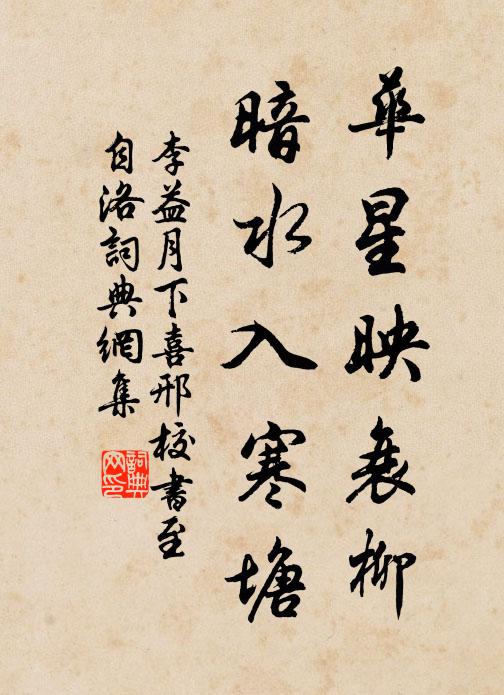 華星映衰柳
暗水入寒塘
李益月下喜邢校書至
自洛詞典網集
詞典网印